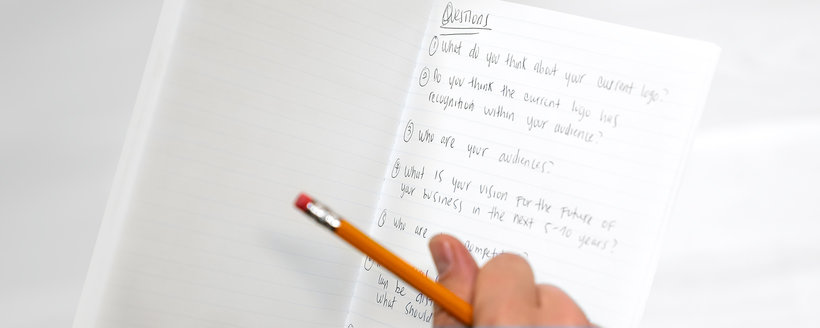 Questions
① What do you think about your current logo?
② Do you think the current logo has
recognition within your audience?
③ Who are your audiences?
④ What is your vision for the future of
your business in the next 5-10 years?
who are
can be
what should